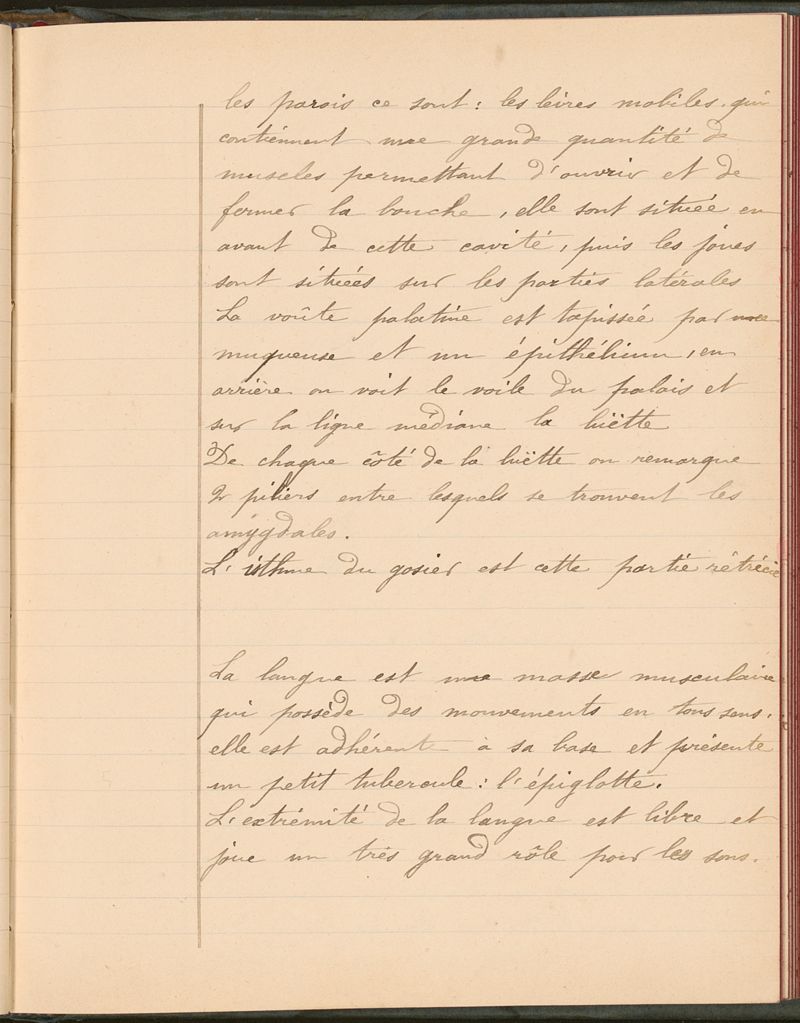 les parois ce sont : les lèvres mobiles. qui
contiennent une grande quantité de
muscles permettant d'ouvrir et de
fermer la bouche, elle sont située en
avant de cette cavité, puis les joues
sont situées sur les parties latérales
La voûte palatine est tapissée par une
muqueuse et un épithélium, en
arrière on voit le voile du palais et
sur la ligne médiane la luëtte
De chaque côté de la luëtte on remarque
2 piliers entre lesquels se trouvent les
amygdales.
L'isthme du gosier est cette partie rétrécie
La langue est une masse musculaire
qui possède des mouvements en tous sens.
elle est adhérente à sa base et présente
un petit tubercule : l'épiglotte.
L'extrémité de la langue est libre et
joue un très grand rôle pour les sons.